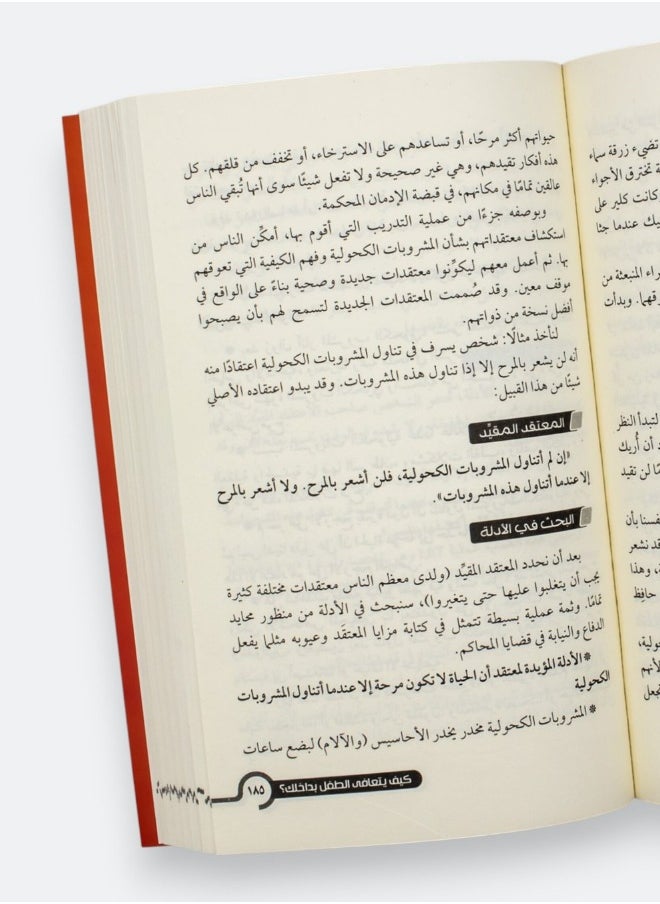 حيواتهم أكثر مرحًا، أو تساعدهم على الاسترخاء، أو تخفف من قلقهم. كل
هذه أفكار تقيدهم، وهي غير صحيحة ولا تفعل شيئًا سوى أنها تُبقي الناس
عالقين تمامًا في مكانهم، في قبضة الإدمان المحكمة.
وبوصفه جزءًا من عملية التدريب التي أقوم بها، أمكِّن الناس من
استكشاف معتقداتهم بشأن المشروبات الكحولية وفهم الكيفية التي تعوقهم
بها. ثم أعمل معهم ليكوِّنوا معتقدات جديدة وصحية بناءً على الواقع في
موقف معين. وقد صُممت المعتقدات الجديدة لتسمح لهم بأن يصبحوا
أفضل نسخة من ذواتهم.
لنأخذ مثالًا: شخص يسرف في تناول المشروبات الكحولية اعتقادًا منه
أنه لن يشعر بالمرح إلا إذا تناول هذه المشروبات. وقد يبدو اعتقاده الأصلي
شيئًا من هذا القبيل:
المعتقد المقيِّد
"إن لم أتناول المشروبات الكحولية، فلن أشعر بالمرح. ولا أشعر بالمرح
إلا عندما أتناول هذه المشروبات".
البحث في الأدلة
بعد أن نحدد المعتقد المقيِّد (ولدى معظم الناس معتقدات مختلفة كثيرة
يجب أن يتغلبوا عليها حتى يتغيروا)، سنبحث في الأدلة من منظور محايد
تمامًا. وثمة عملية بسيطة تتمثل في كتابة مزايا المعتقَد وعيوبه مثلما يفعل
الدفاع والنيابة في قضايا المحاكم.
* الأدلة المؤيدة لمعتقد أن الحياة لا تكون مرحة إلا عندما أتناول المشروبات
الكحولية
* المشروبات الكحولية مخدر يخدر الأحاسيس (والآلام) لبضع ساعات
كيف يتعافى الطفل بداخلك؟ ١٨٥
تضيء زرقة سماء
تخترق الأجواء
كانت كلير على
عندما جثا
المنبعثة من
وبدأت
لتبدأ النظر
أن أريك
لن تقيد
بأن
قد نشعر
وهذا
حافِظ